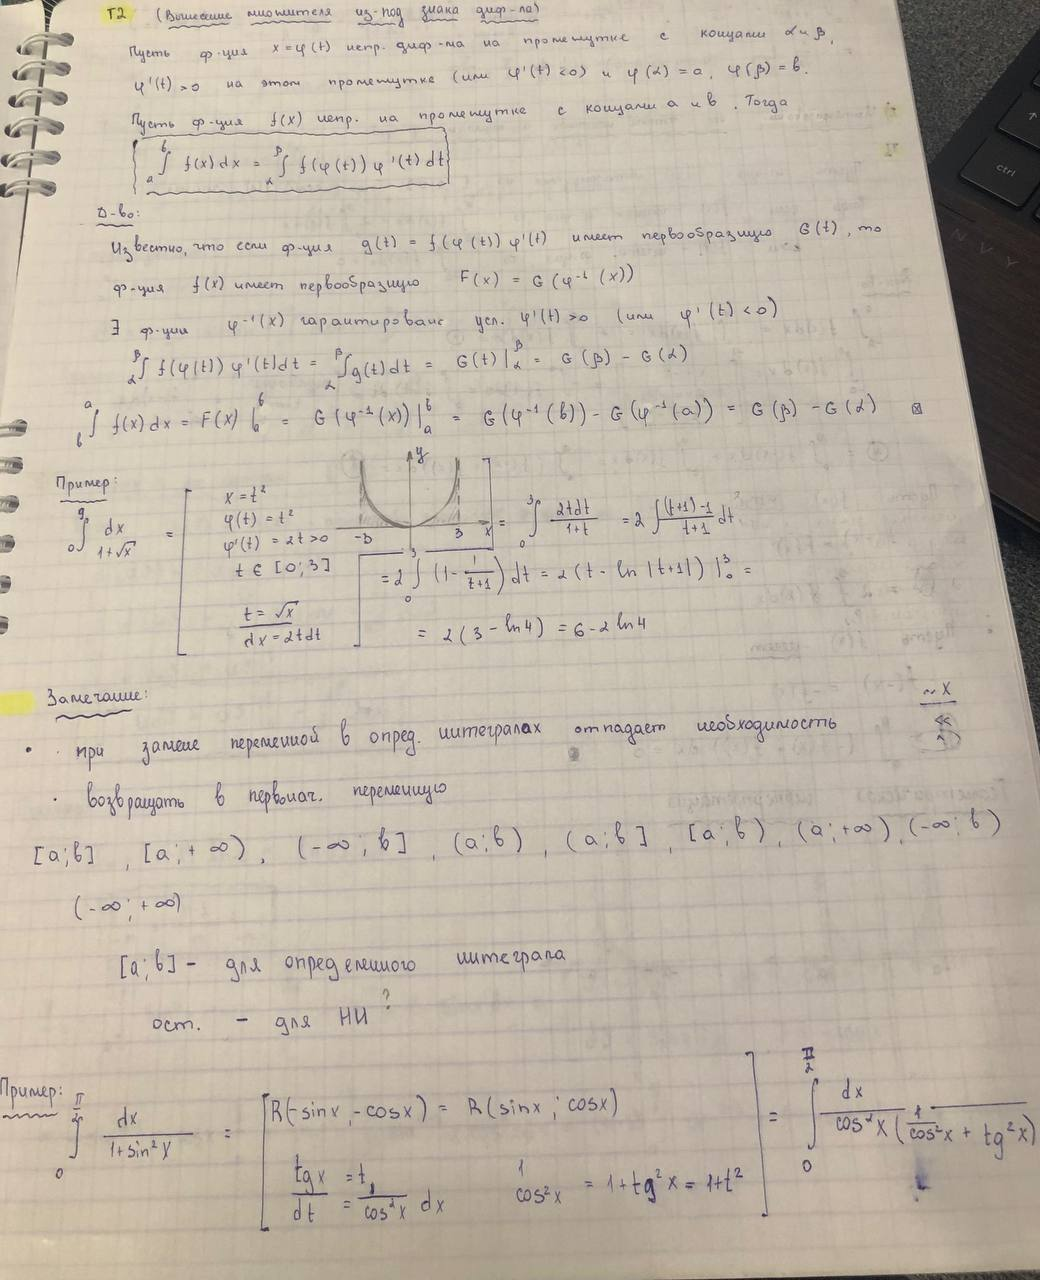 Т2 (Вынесение множителя из-под знака диф-ла)
Пусть ф-ция x = φ(t) непр. диф-ма на промежутке с концами α и β,
φ'(t) > 0 на этом промежутке (или φ'(t) < 0) и φ(α) = a, φ(β) = b.
Пусть ф-ция f(x) непр. на промежутке с концами a и b. Тогда
∫_a^b f(x) dx = ∫_α^β f(φ(t)) φ'(t) dt
Д-во:
Известно, что если ф-ция g(t) = f(φ(t)) φ'(t) имеет первообразную G(t), то
ф-ция f(x) имеет первообразную F(x) = G(φ⁻¹(x))
∃ ф-ции φ⁻¹(x) гарантирована усл. φ'(t) > 0 (или φ'(t) < 0)
∫_α^β f(φ(t)) φ'(t) dt = ∫_α^β g(t) dt = G(t)|_α^β = G(β) - G(α)
∫_b^a f(x) dx = F(x)|_a^b = G(φ⁻¹(x))|_a^b = G(φ⁻¹(b)) - G(φ⁻¹(a)) = G(β) - G(α) ⊠
Пример:
∫_0^9 dx/(1+√x) = [ x = t²
φ(t) = t²
φ'(t) = 2t > 0
t ∈ [0; 3]
t = √x
dx = 2tdt
y
-3 3 x ]
= ∫_0^3 2tdt/(1+t) = 2 ∫ ((t+1)-1)/(t+1) dt
= 2 ∫_0^3 (1 - 1/(t+1)) dt = 2(t - ln|t+1|)|_0^3 =
= 2(3 - ln4) = 6 - 2 ln4
Замечание:
~ X
· при замене переменной в опред. интегралах отпадает необходимость
· возвращать в первонач. переменную
[a; b], [a; +∞), (-∞; b], (a; b), (a; b], [a; b), (a; +∞), (-∞; b)
(-∞; +∞)
[a; b] - для определенного интеграла
ост. - для НИ ?
Пример:
∫_0^{π/2} dx/(1+sin²x) = [ R(-sinx, -cosx) = R(sinx; cosx)
tgx = t,
dt = 1/cos²x dx 1/cos²x = 1+tg²x = 1+t² ] = ∫_0^{π/2} dx/(cos²x(1/cos²x + tg²x))